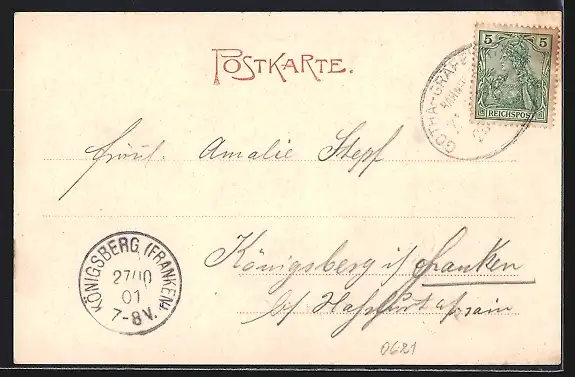 POSTKARTE.
5 5
REICHSPOST
GOTHA-GRÄFE
BAHN
Fräul. Amalie Stepf
Königsberg i/ Franken
b/ Hassfurt a/ Main
KÖNIGSBERG (FRANKEN)
27/10
01
7-8V.
0621